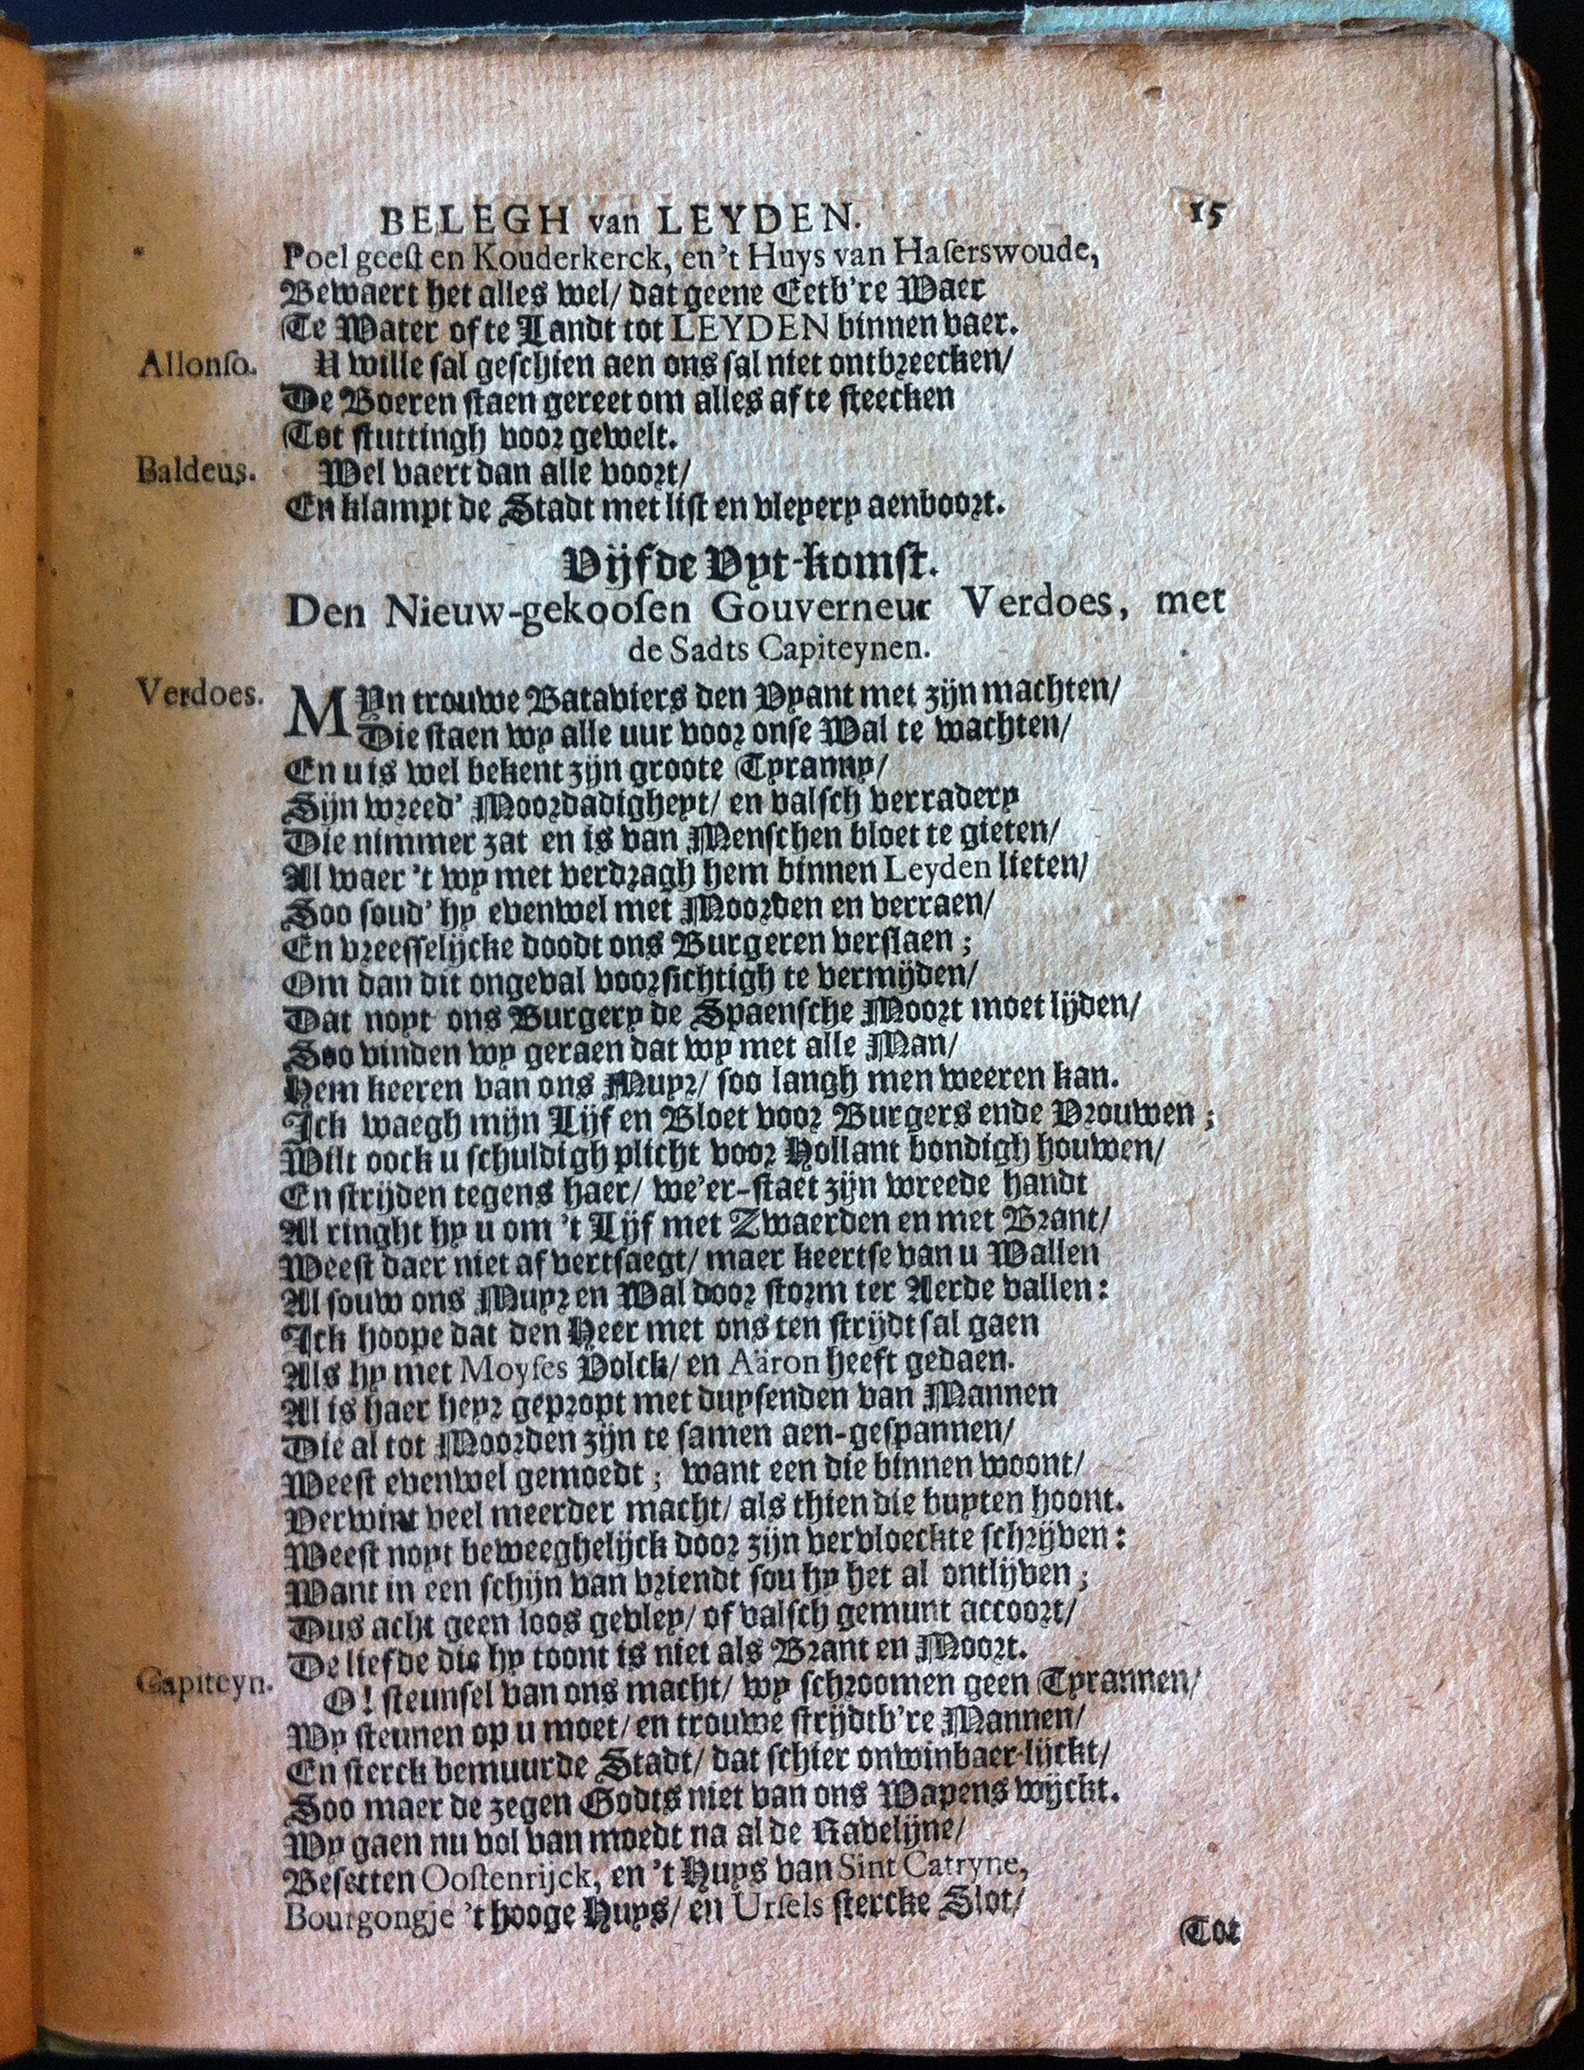 BELEGH van LEYDEN. 15
Poel geest en Kouderkerck, en 't Huys van Haserswoude,
Bewaert het alles wel/ dat geene Eetb're Waer
Te Water of te Landt tot LEYDEN binnen vaer.
Allonso. U wille sal geschien aen ons sal niet ontbreecken/
De Boeren staen gereet om alles af te steecken
Tot stuttingh voor gewelt.
Baldeus. Wel vaert dan alle voort/
En klampt de Stadt met list en vleyery aenboort.
Vijfde Vyt-komst.
Den Nieuw-gekoosen Gouverneur Verdoes, met
de Sadts Capiteynen.
Verdoes. MYn trouwe Bataviers den Vyant met zijn machten/
Die staen wy alle uur voor onse Wal te wachten/
En u is wel bekent zijn groote Tyranny/
Sijn wreed' Moordadigheyt/ en valsch verradery
Die nimmer zat en is van Menschen bloet te gieten/
Al waer 't wy met verdragh hem binnen Leyden lieten/
Soo soud' hy evenwel met Moorden en verraen/
En vreesselijcke doodt ons Burgeren verslaen;
Om dan dit ongeval voorsichtigh te vermijden/
Dat noyt ons Burgery de Spaensche Moort moet lijden/
Soo vinden wy geraen dat wy met alle Man/
Hem keeren van ons Muyr/ soo langh men weeren kan.
Ick waegh mijn Lijf en Bloet voor Burgers ende Vrouwen;
Wilt oock u schuldigh plicht voor Hollant bondigh houwen/
En strijden tegens haer/ we'er-staet zijn wreede handt
Al ringht hy u om 't Lijf met Zwaerden en met Brant/
Weest daer niet af vertsaegt/ maer keertse van u Wallen
Al souw ons Muyr en Wal door storm ter Aerde vallen:
Ick hoope dat den Heer met ons ten strijdt sal gaen
Als hy met Moyses Volck/ en Aäron heeft gedaen.
Al is haer heyr gepropt met duysenden van Mannen
Die al tot Moorden zijn te samen aen-gespannen/
Weest evenwel gemoedt; want een die binnen woont/
Verwint veel meerder macht/ als thien die buyten hoont.
Weest noyt beweeghelijck door zijn vervloeckte schrijven:
Want in een schijn van vriendt sou hy het al ontlijven;
Dus acht geen loos gevley/ of valsch gemunt accoort/
De liefde die hy toont is niet als Brant en Moort.
Capiteyn. O! steunsel van ons macht/ wy schroomen geen Tyrannen/
Wy steunen op u moet/ en trouwe strijdtb're Mannen/
En sterck bemuurde Stadt/ dat schier onwinbaer-lijckt/
Soo maer de zegen Godts niet van ons Wapens wijckt.
Wy gaen nu vol van moedt na al de Ravelijne/
Besetten Oostenrijck, en 't Huys van Sint Catryne,
Bourgongje 't hooge Huys/ en Ursels stercke Slot/
Tot